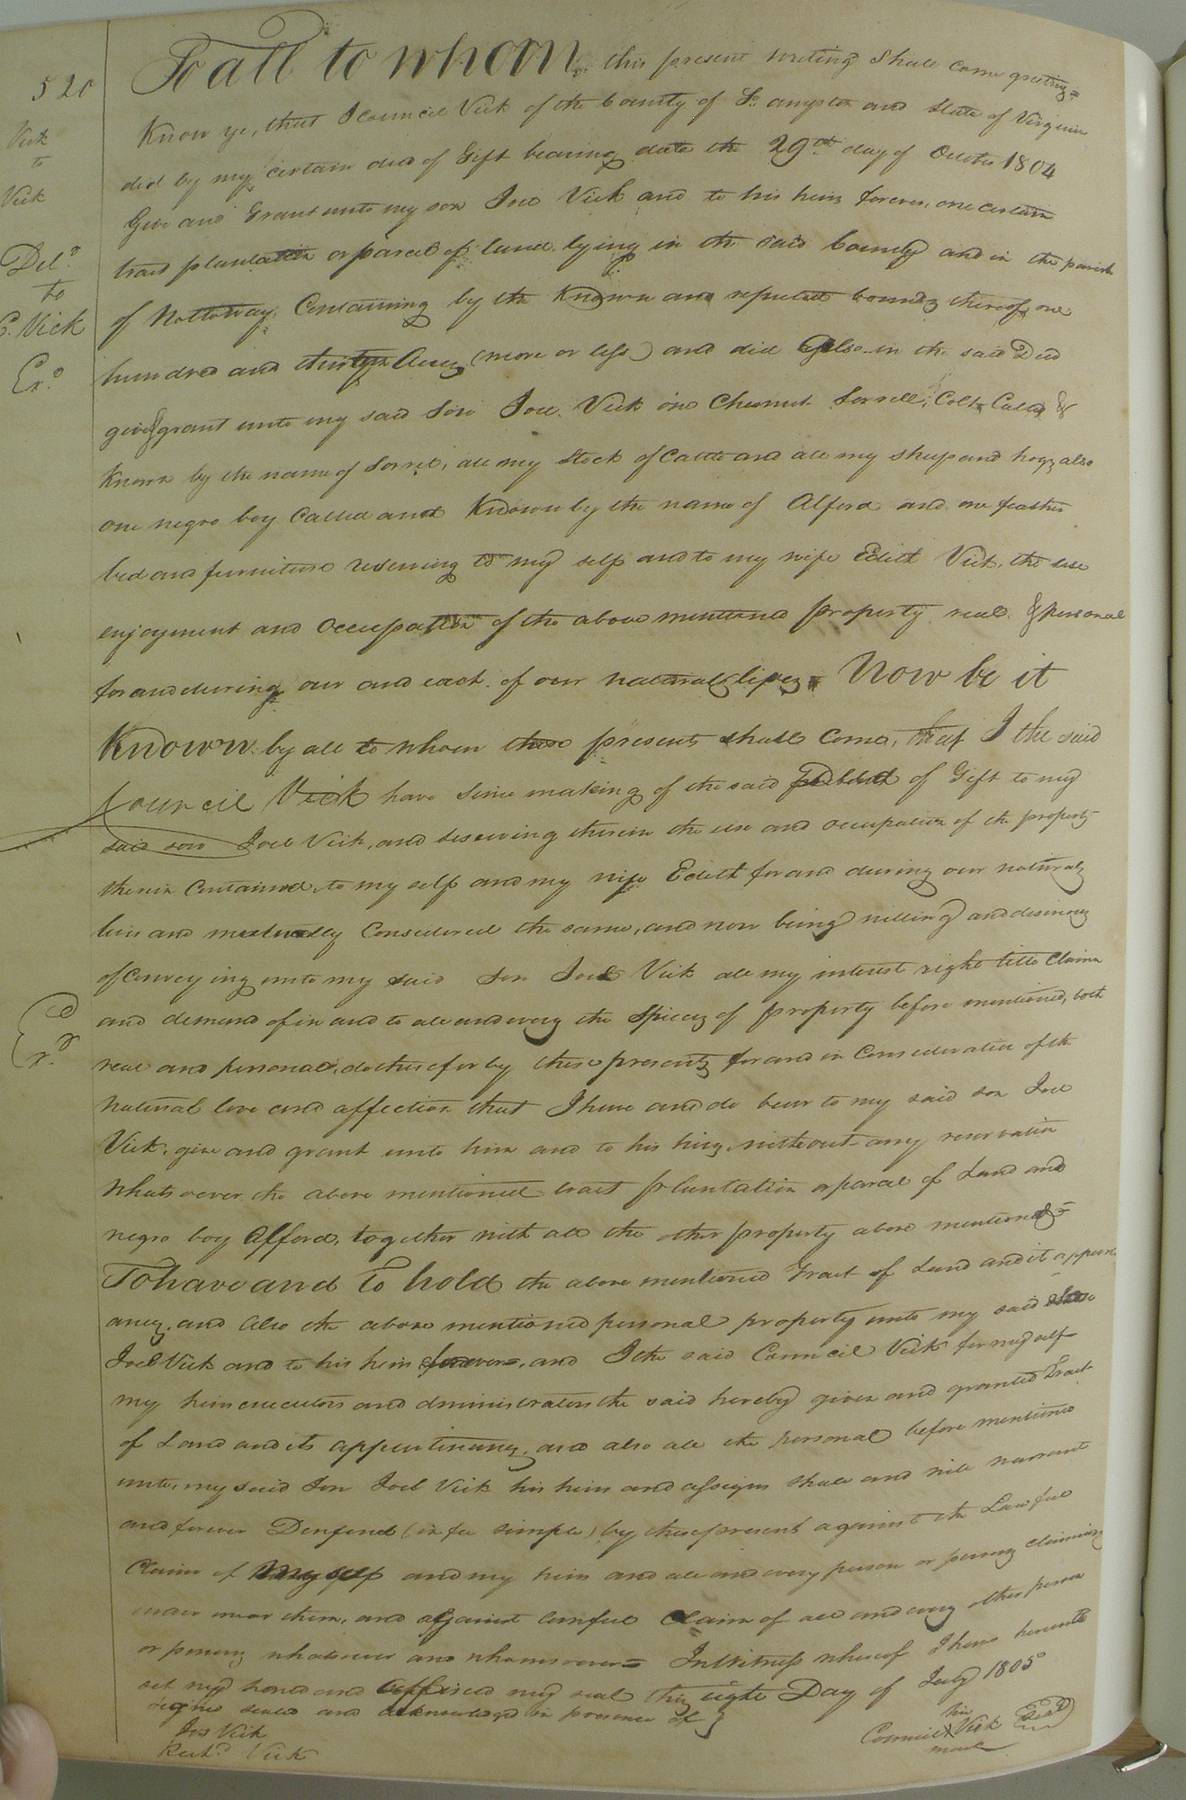 520
Vick
to
Vick
Deld
to
C. Vick
Exd
Exd
To all to whom this present writing Shall Come greeting =
Know ye, that I Council Vick of the County of So. ampton and State of Virginia
did by my certain deed of Gift bearing date the 29th day of October 1804
Give and Grant unto my son Joel Vick and to his heirs forever, one certain
tract plantation or parcel of land lying in the said County and in the parish
of Nottoway, Containing by the Known and reputed bounds thereof one
hundred and thirty Acres (more or less) and did also in the said Deed
give & grant unto my said Son Joel Vick one Chesnut Sorrell, Colt Calld &
Known by the name of Sorrel, all my Stock of Cattle and all my sheep and hogs also
one negro boy Called and Known by the name of Alford and one feather
bed and furniture reserving to my self and to my wife Edith Vick, the use
enjoyment and occupation of the above mentioned property real & personal
for and during our and each of our natural lives = Now be it
Known by all to whom these presents shall Come, that I the said
Council Vick have Since making of the said of Gift to my
said son Joel Vick, and reserving therein the use and occupation of the property
therein Contained, to my self and my wife Edith for and during our natural
lives and Considered the same, and now being willing and desirous
of Conveying unto my said Son Joel Vick all my interest right title Claim
and demand of in and to all and every the Spicies of property before mentioned, both
real and personal, do therefor by these presents for and in Consideration of the
natural love and affection that I have and do bear to my said son Joel
Vick, give and grant unto him and to his heirs without any reservation
whatsoever the above mentioned tract plantation or parcel of Land and
negro boy Alford, together with all the other property above mentioned =
To have and to hold the above mentioned Tract of Land and it appurten
ances, and Also the above mentioned personal property unto my said Son
Joel Vick and to his heirs forever, and I the said Council Vick for my self
my heirs executors and administrators the said hereby given and granted Tract
of Land and its appurtinances, and also all the personal before mentioned
unto, my said Son Joel Vick his heirs and assigns shall and will warrant
and forever Denfend (in fee simple) by these present against the Lawful
Claim of My self and my heirs and all and every person or persons claiming
under me or them, and against lawful Claim of all and every other person
or persons whatsoever and whomsoever = In Witness whereof I have hereunto
set my hand and affixed my seal this eight Day of July 1805
signed sealed and acknowledged in presence of }
Jos Vick
Richd Vick
his
Council X Vick Seal
mark